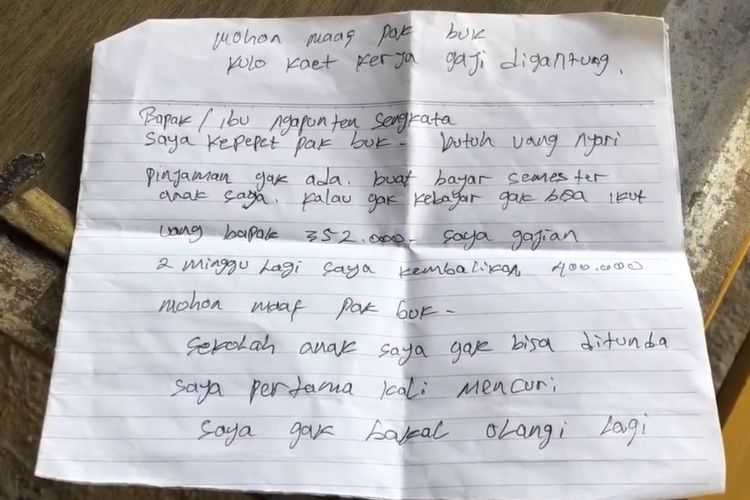 mohon maaf pak buk
kulo kaet kerja gaji digantung.
Bapak / ibu ngapunten sengkata
saya kepepet pak buk - butuh uang nyari
pinjaman gak ada. buat bayar semester
anak saya. kalau gak kebayar gak bisa ikut
uang bapak 352.000- saya gajian
2 minggu lagi saya kembalikan 400.000
mohon maaf pak buk -
sekolah anak saya gak bisa ditunda
saya pertama kali mencuri
saya gak bakal olangi lagi